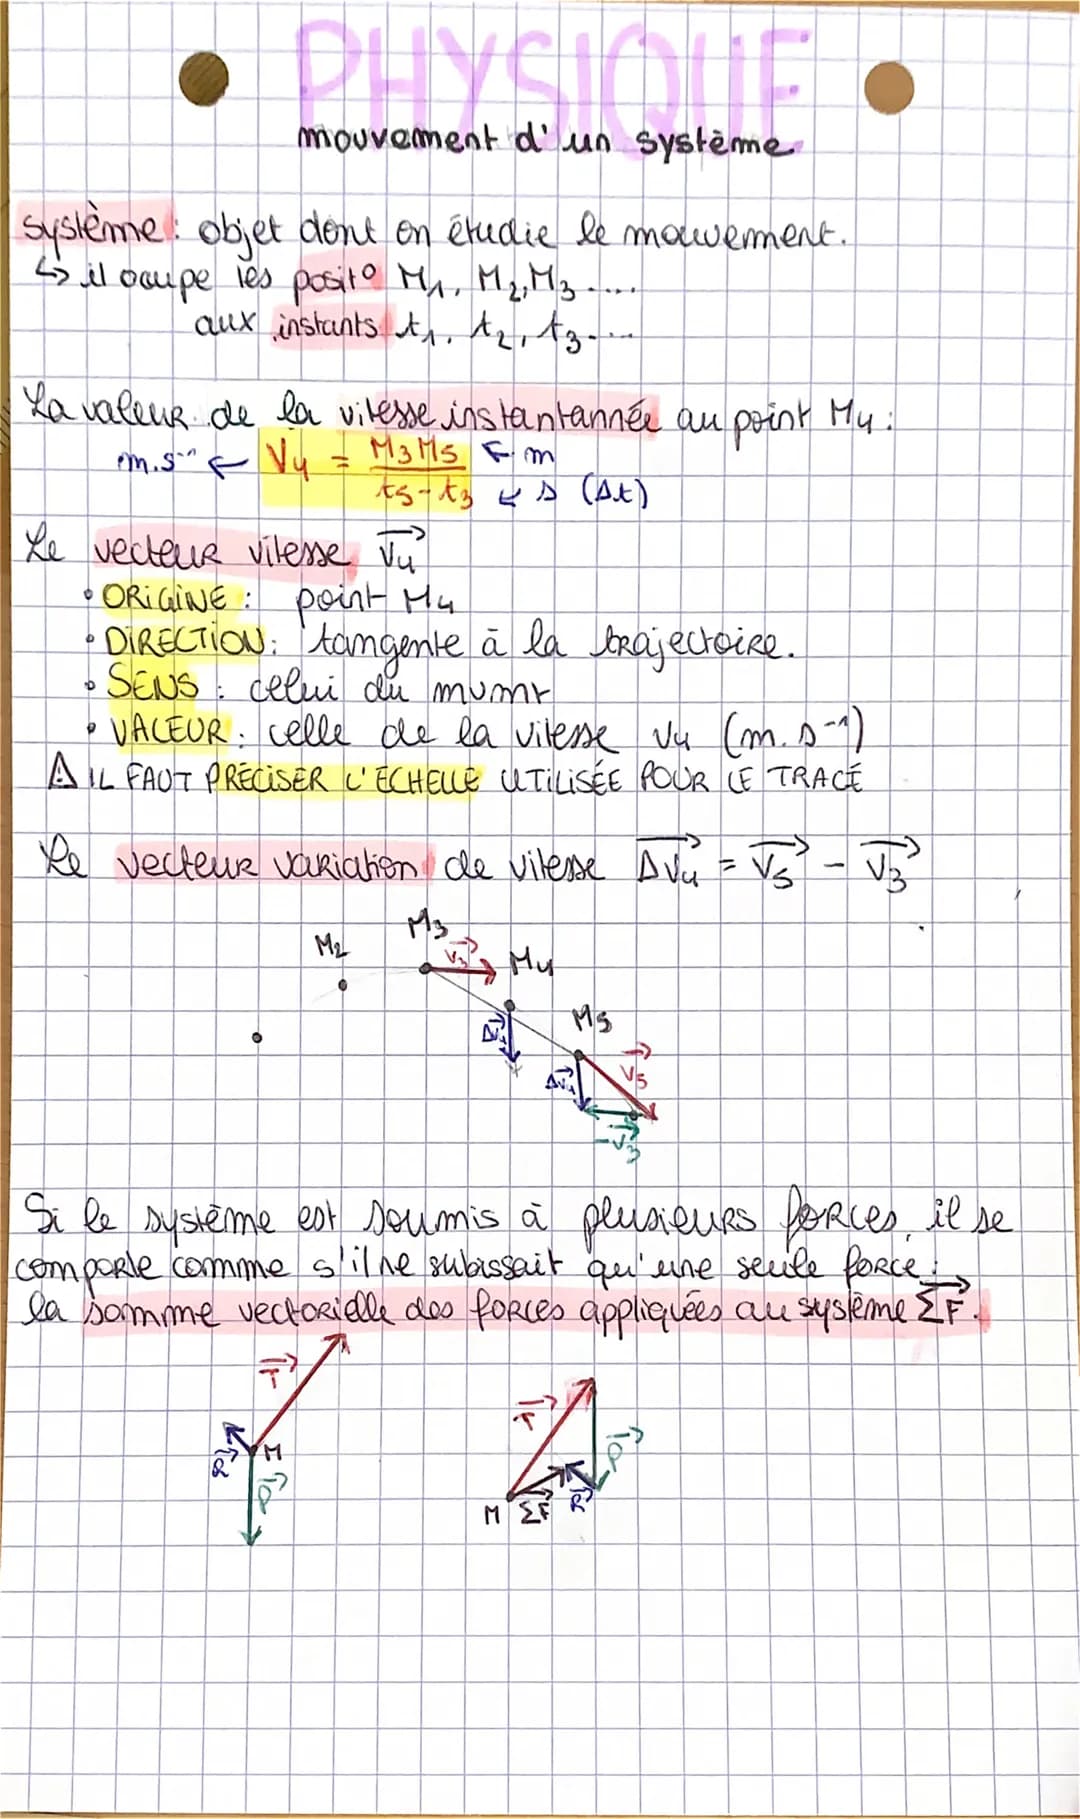 PHYSIQUE
mouvement d'un système
système : objet dont on étudie le mouvement.
↳ il occupe les posit° M₁, M₂, M₃....
aux instants t₁, t₂, t₃....
La valeur de la vitesse instantannée au point M₄ :
m.s⁻¹ ← V₄ = M₃M₅ / t₅-t₃ ← m ↙ s (Δt)
Le vecteur vitesse V₄→
• ORIGINE : point M₄
• DIRECTION : tangente à la trajectoire.
• SENS : celui du mvmt
• VALEUR : celle de la vitesse V₄ (m.s⁻¹)
⚠ IL FAUT PRÉCISER L'ÉCHELLE UTILISÉE POUR LE TRACÉ
Le vecteur variation de vitesse ΔV₄→ = V₅→ - V₃→
M₃
M₂ V₃→ M₄
M₅
ΔV₄→
V₅→
ΔV₄→
-V₃→
Si le système est soumis à plusieurs forces, il se
comporte comme s'il ne subissait qu'une seule force :
la somme vectorielle des forces appliquées au système ΣF→.
T→ T→
R→ M P→
P→ M ΣF→ R→